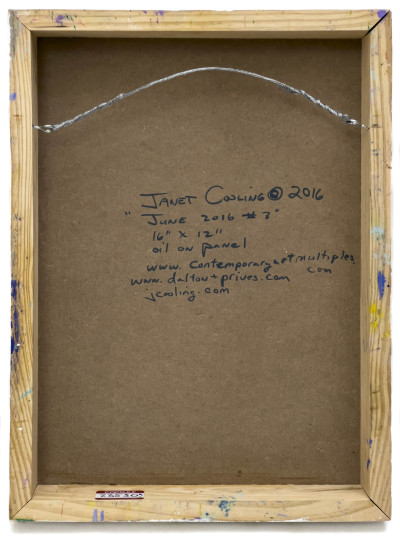 JANET COOLING © 2016
"JUNE 2016 #3"
16" x 12"
oil on panel
www. contemporaryartmultiples.
com
www. dalton+prives. com
jcooling. com